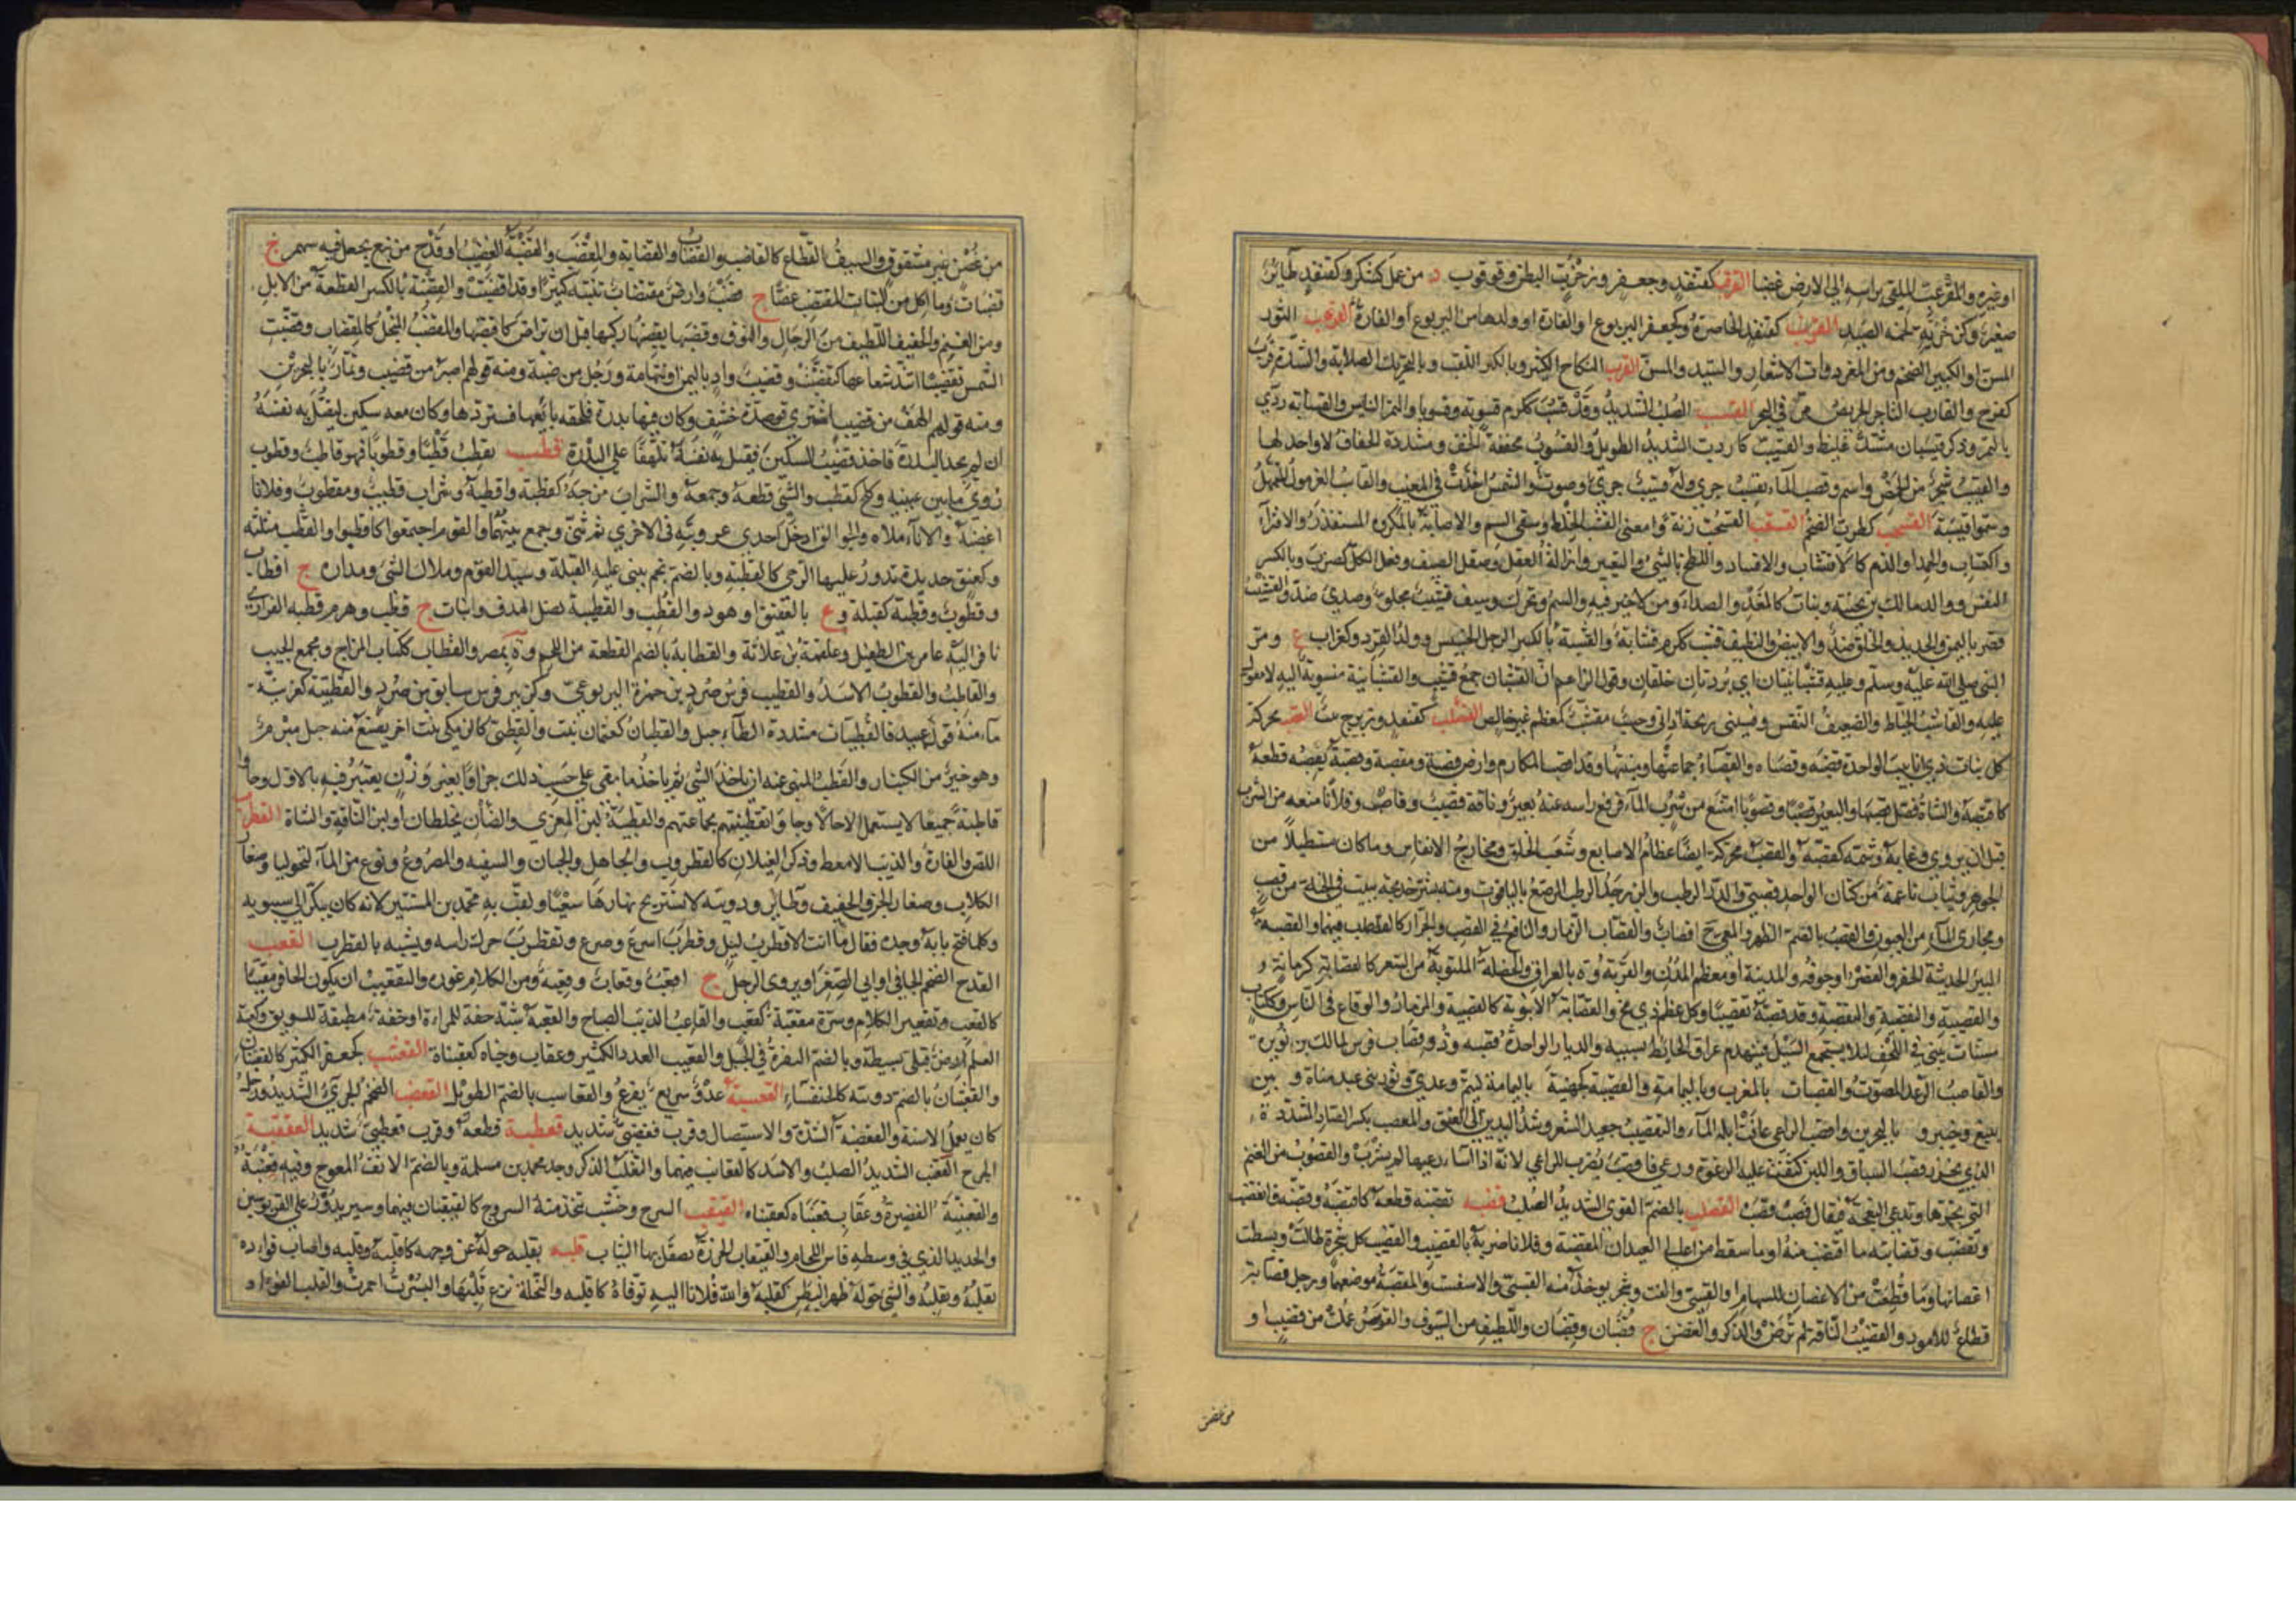 او غيره والمقرعب الملقي براسه الى الارض غضبا القرقب كقنفذ وجعفر وزخزب البطن وقرقوب د من عمل كسكر وكقنفذ طائر
صغير وكزخزبة لحمة الصيد القرنب كقنفذ الخاصرة وكجعفر اليربوع او الفارة او ولدها من اليربوع او الفارة القرهب الثور
المسن او الكبير الضخم ومن المعز ذوات الاشعار والسيد والمسن القزب النكاح الكثير وبالكسر اللقب وبالتحريك الصلابة والشدة قزب
كفرح والقازب التاجر الحريص مرة في البحر القسب الصلب الشديد وقد قسب ككرم قسوبة وقسوبا والتمر اليابس والقسابة ردي
التمر وذكر قيسبان مشتد غليظ والقسيب كاردب الشديد الطويل والقسوب مخففة الخف ومشددة الخفاف لا واحد لها
والقيسب شجر من الحمض واسم وقسب الماء يقسب جرى وله قسيب جري وصوت والشمس اخذت في المغيب والقاسب الغرمول المتمهل
وسموا قيسبة القسحب كطرطب الضخم القسقب القسحب زنة ومعنى القشب الخلط وسقي السم والاصابة بالمكروه المستقذر والافتراء
واكتساب الحمد او الذم كالاقتشاب والافساد واللطخ بالشيء والتعيير وازالة العقل وصقل السيف وفعل الكل كضرب وبالكسر
النفس ووالد مالك بن بحينة ونبات كالمغد والصدأ ومن لا خير فيه والسم ويحرك وسيف قشيب مجلو وصدئ ضد والقشيب
قصر باليمن والجديد والخلق ضد والابيض والنظيف قشب ككرم قشابة والقشبة بالكسر الرجل الخسيس وولد القرد وكغراب ع ومر
النبي صلى الله عليه وسلم وعليه قشبانيتان اي بردتان خلقان وقول الزاعم ان القشبان جمع قشيب والقشبانية منسوبة اليه لا معول
عليه والقاشب الخياط والضعيف النفس وقشبني ريحه آذاني وحسب مقشب كمعظم غير خالص القشلب كقنفذ وزبرج نبت القصب محركة
كل نبات ذي انابيب الواحدة قصبة وقصباة والقصباء جماعتها ومنبتها وقد اقصب المكان وارض قصبة ومقصبة وقصبه يقصبه قطعه
كاقتصبه والشاة فصل قصبها والبعير قصبا وقصوبا امتنع من شرب الماء فرفع راسه عنه بعير وناقة قصيب وقاصب وفلانا منعه من الشرب
قبل ان يروى وعابه وشتمه كقصبه والقصب محركة ايضا عظام الاصابع وشعب الحلق ومخارج الانفاس وما كان مستطيلا من
الجوهر وثياب ناعمة من كتان الواحد قصبي والدر الرطب والزبرجد الرطب المرصع بالياقوت ومنه بشر خديجة ببيت في الجنة من قصب
ومجاري الماء من العيون والقصب بالضم الظهر والمعى ج اقصاب والقصاب الزمار والنافخ في القصب والجزار كالقاصب فيهما والقصبة
البئر الحديثة الحفر والقصر او جوفه والمدينة او معظم المدن والقرية وة بالعراق والخصلة الملتوية من الشعر كالقصابة كرمانة و
والقصيبة والتقصيبة والتقصبة وقد قصبه تقصيبا وكل عظم ذي مخ والقصابة الانبوبة كالقصيبة والمزمار والوقاع في الناس وككتاب
مسناة تبنى في اللحف لئلا يستجمع السيل فينهدم عراق الحائط بسببه والديار الواحدة قصبة وذو قصاب فرس لمالك بن نويرة
والقاصب الرعد المصوت والقصبات د بالمغرب وبا ليمامة والقصيبة كجهينة ع باليمامة لتيم وعدي وثور بني عبد مناة و بين
ينبع وخيبر و بالبحرين واقصب الراعي عافت ابله الماء والتقصيب تجعيد الشعر وشد اليدين الى العنق والمقصب بكسر الصاد المشددة
الذي يحرز قصب السباق واللبن كثفت عليه الرغوة ورعى فاقصب يضرب للراعي لانه اذا اساء رعيها لم تشرب والقصوب من الغنم
التي تجزها وتدعى النعجة فيقال قصب قصب القصلب بالضم القوي الشديد الصلب قضبه يقضبه قطعه كاقتضبه وقضبه فانقضب
وتقضب وقضابته ما اقتضب منه او ما سقط من اعلى العيدان المقتضبة وفلانا ضربه بالقضيب والقضب كل شجرة طالت وبسطت
اغصانها وما قطعت من الاغصان للسهام او القسي والقت وشجر يؤخذ منه القسي والاسفست والمقضبة موضعهما ورجل قضابة
قطاع للامور والقضيب الناقة لم ترض والذكر والغصن ج قضبان وقضبان واللطيف من السيوف والقوس عملت من قضيب او
من غصن
من غصن غير مشقوق والسيف القطاع كالقاضب والقضاب والقضابة والمقضب والقضبة القضيب او قدح من نبع يجعل فيه سهم ج
قضبات وما اكل من النبات المقتضب غضا ج قضب وارض مقضاب تنبته كثيرا وقد اقضبت والقضبة بالكسر القطعة من الابل
ومن الغنم والخفيف اللطيف من الرجال والنوق وقضبها يقضبها ركبها قبل ان تراض كاقتضبها والمقضب المنجل كالمقضاب وقضبت
الشمس تقضيبا امتد شعاعها كتقضبت وقضيب واد باليمن او بتهامة ورجل من ضبة ومنه قولهم اصبر من قضيب وتمار بالبحرين
ومنه قولهم الهف من قضيب اشترى قوصرة حشف وكان فيها بدرة فلحقه بائعها فاستردها وكان معه سكين ليقتل به نفسه
ان لم يجد البدرة فاخذ قضيب السكين فقتل به نفسه تلهفا على البدرة قطب يقطب قطبا وقطوبا فهو قاطب وقطوب
زوى ما بين عينيه وكلح كقطب والشيء قطعه وجمعه والشراب مزجه كقطبه واقطبه وشراب قطيب ومقطوب وفلانا
اغضبه والاناء ملأه والجوالق ادخل احدى عروتيه في الاخرى ثم ثنى وجمع بينهما والقوم اجتمعوا كاقطبوا والقطب مثلثة
وكعنق حديدة تدور عليها الرحى كالقطبة وبالضم نجم تبنى عليه القبلة وسيد القوم وملاك الشيء ومداره ج اقطاب
وقطوب وقطبة كقيلة وع بالعقيق او هو ذو القطب والقطبة نصل الهدف ونبات ج قطب وهرم بن قطبة الفزاري
نافر اليه عامر بن الطفيل وعلقمة بن علاثة والقطابة بالضم القطعة من اللحم وة بمصر والقطاب ككتاب المزاج ومجمع الجيب
والقاطب والقطوب الاسد والقطيب فرس صرد بن حمزة اليربوعي وكزبير فرس سابق بن صرد والقطبية كعربية
ماء منه قول عبيد فالقطبيات مشددة الطاء جبل والقطبان كعثمان نبت والقطبى كالزمكى نبت اخر يصنع منه حبل مبرم
وهو خير من الكنبار والقطب المنهي عنه ان ياخذ الشيء ثم ياخذ ما بقي على حسب ذلك جزافا بغير وزن يعتبر فيه بالاول وجاؤا
قاطبة جميعا لا يستعمل الا حالا وجاؤا بقطيبتهم بجماعتهم والقطيبة لبن المعزى والضان يخلطان او لبن الناقة والشاة القطرب
اللص والفارة والذئب الامعط وذكر الغيلان كالقطروب والجاهل والجبان والسفيه والمصروع ونوع من الماليخوليا وصغار
الكلاب وصغار الجن والخفيف وطائر ودويبة لا تستريح نهارها سعيا ولقب به محمد بن المستنير لانه كان يبكر الى سيبويه
وكلما فتح بابه وجده فقال ما انت الا قطرب ليل وقطرب اسرع وصرع وتقطرب حرك راسه وتشبه بالقطرب القعب
القدح الضخم الجافي او الى الصغر او يروي الرجل ج اقعب وقعاب وقعبة ومن الكلام غوره والتقعيب ان يكون الحافر مقببا
كالقعب وتقعير الكلام وسرة مقعبة كقعب والقاعب الذئب الصياح والقعبة شبه حقة للمراة او حقة مطبقة للسويق وكهنة
العلم لارض قبل بسيطة وبالضم النقرة في الجبل والقعيب العدد الكثير وعقاب قعنباة كعقنباة القعثب كجعفر الكثير كالقعثبان
والقعثبان بالضم دويبة كالخنفساء القعسبة عدو سريع بفزع والقعاسب بالضم الطويل القعضب الضخم الجريء الشديد ورجل
كان يعمل الاسنة والقعضبة الشدة والاستيصال وقرب قعضبي شديد قعطبه قطعه وقرب قعطبي شديد العقعبة
الجرح القعنب الشديد الصلب والاسد كالقعانب فيهما والثعلب الذكر وجد محمد بن مسلمة وبالضم الانف المعوج وفيه قعنبة
والقعنبة القصيرة وعقاب قعنباة كعقنباة القيقب السرج وخشب تتخذ منه السروج كالقيقبان فيهما وسير يدور على القربوسين
والحديد الذي في وسطه فاس اللجام والقيقاب الخرزة تصقل بها الثياب قلبه يقلبه حوله عن وجهه كاقلبه وقلبه واصاب فؤاده
يقلبه ويقلبه والشيء حوله ظهرا لبطن كقلبه والله فلانا اليه توفاه كاقلبه والنخلة نزع قلبها والبسرة احمرت والقلب الفؤاد